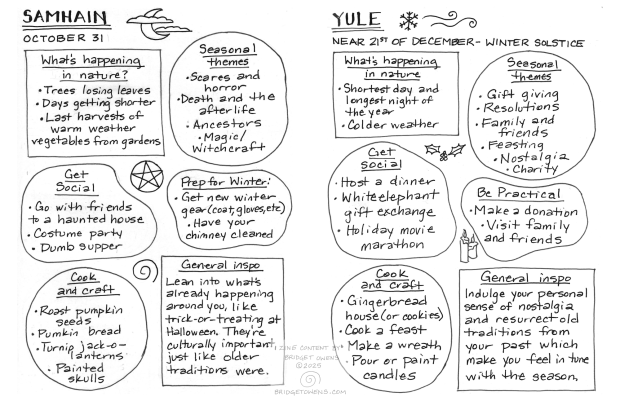 SAMHAIN
OCTOBER 31
What's happening
in nature?
• Trees losing leaves
• Days getting shorter
• Last harvests of
warm weather
vegetables from gardens
Seasonal
themes
• Scares and
horror
• Death and the
afterlife
• Ancestors
• Magic/
Witchcraft
Get
Social
• Go with friends
to a haunted house
• Costume party
• Dumb supper
Prep for Winter!
• Get new winter
gear (coat, gloves, etc)
• Have your
chimney cleaned
Cook
and craft
• Roast pumpkin
seeds
• Pumkin bread
• Turnip jack-o-
lanterns
• Painted
skulls
General inspo
Lean into what's
already happening
around you, like
trick-or-treating at
Halloween. They're
culturally important
just like older
traditions were.
YULE
NEAR 21ST OF DECEMBER - WINTER SOLSTICE
What's happening
in nature
• Shortest day and
longest night of
the year
• Colder weather
Seesonal
themes
• Gift giving
• Resolutions
• Family and
friends
• Feasting
• Nostalgia
• Charity
Get
social
• Host a dinner
• White elephant
gift exchange
• Holiday movie
marathon
Be Practical
• Make a donation
• Visit family
and friends
Cook
and craft
• Gingerbread
house (or cookies)
• Cook a feast
• Make a wreath
• Pour or paint
candles
General inspo
Indulge your personal
sense of nostalgia
and resurrect old
traditions from
your past which
make you feel in tune
with the season.
ZINE CONTENT BY
BRIDGET OWENS
©2025
BRIDGETOWENS.COM